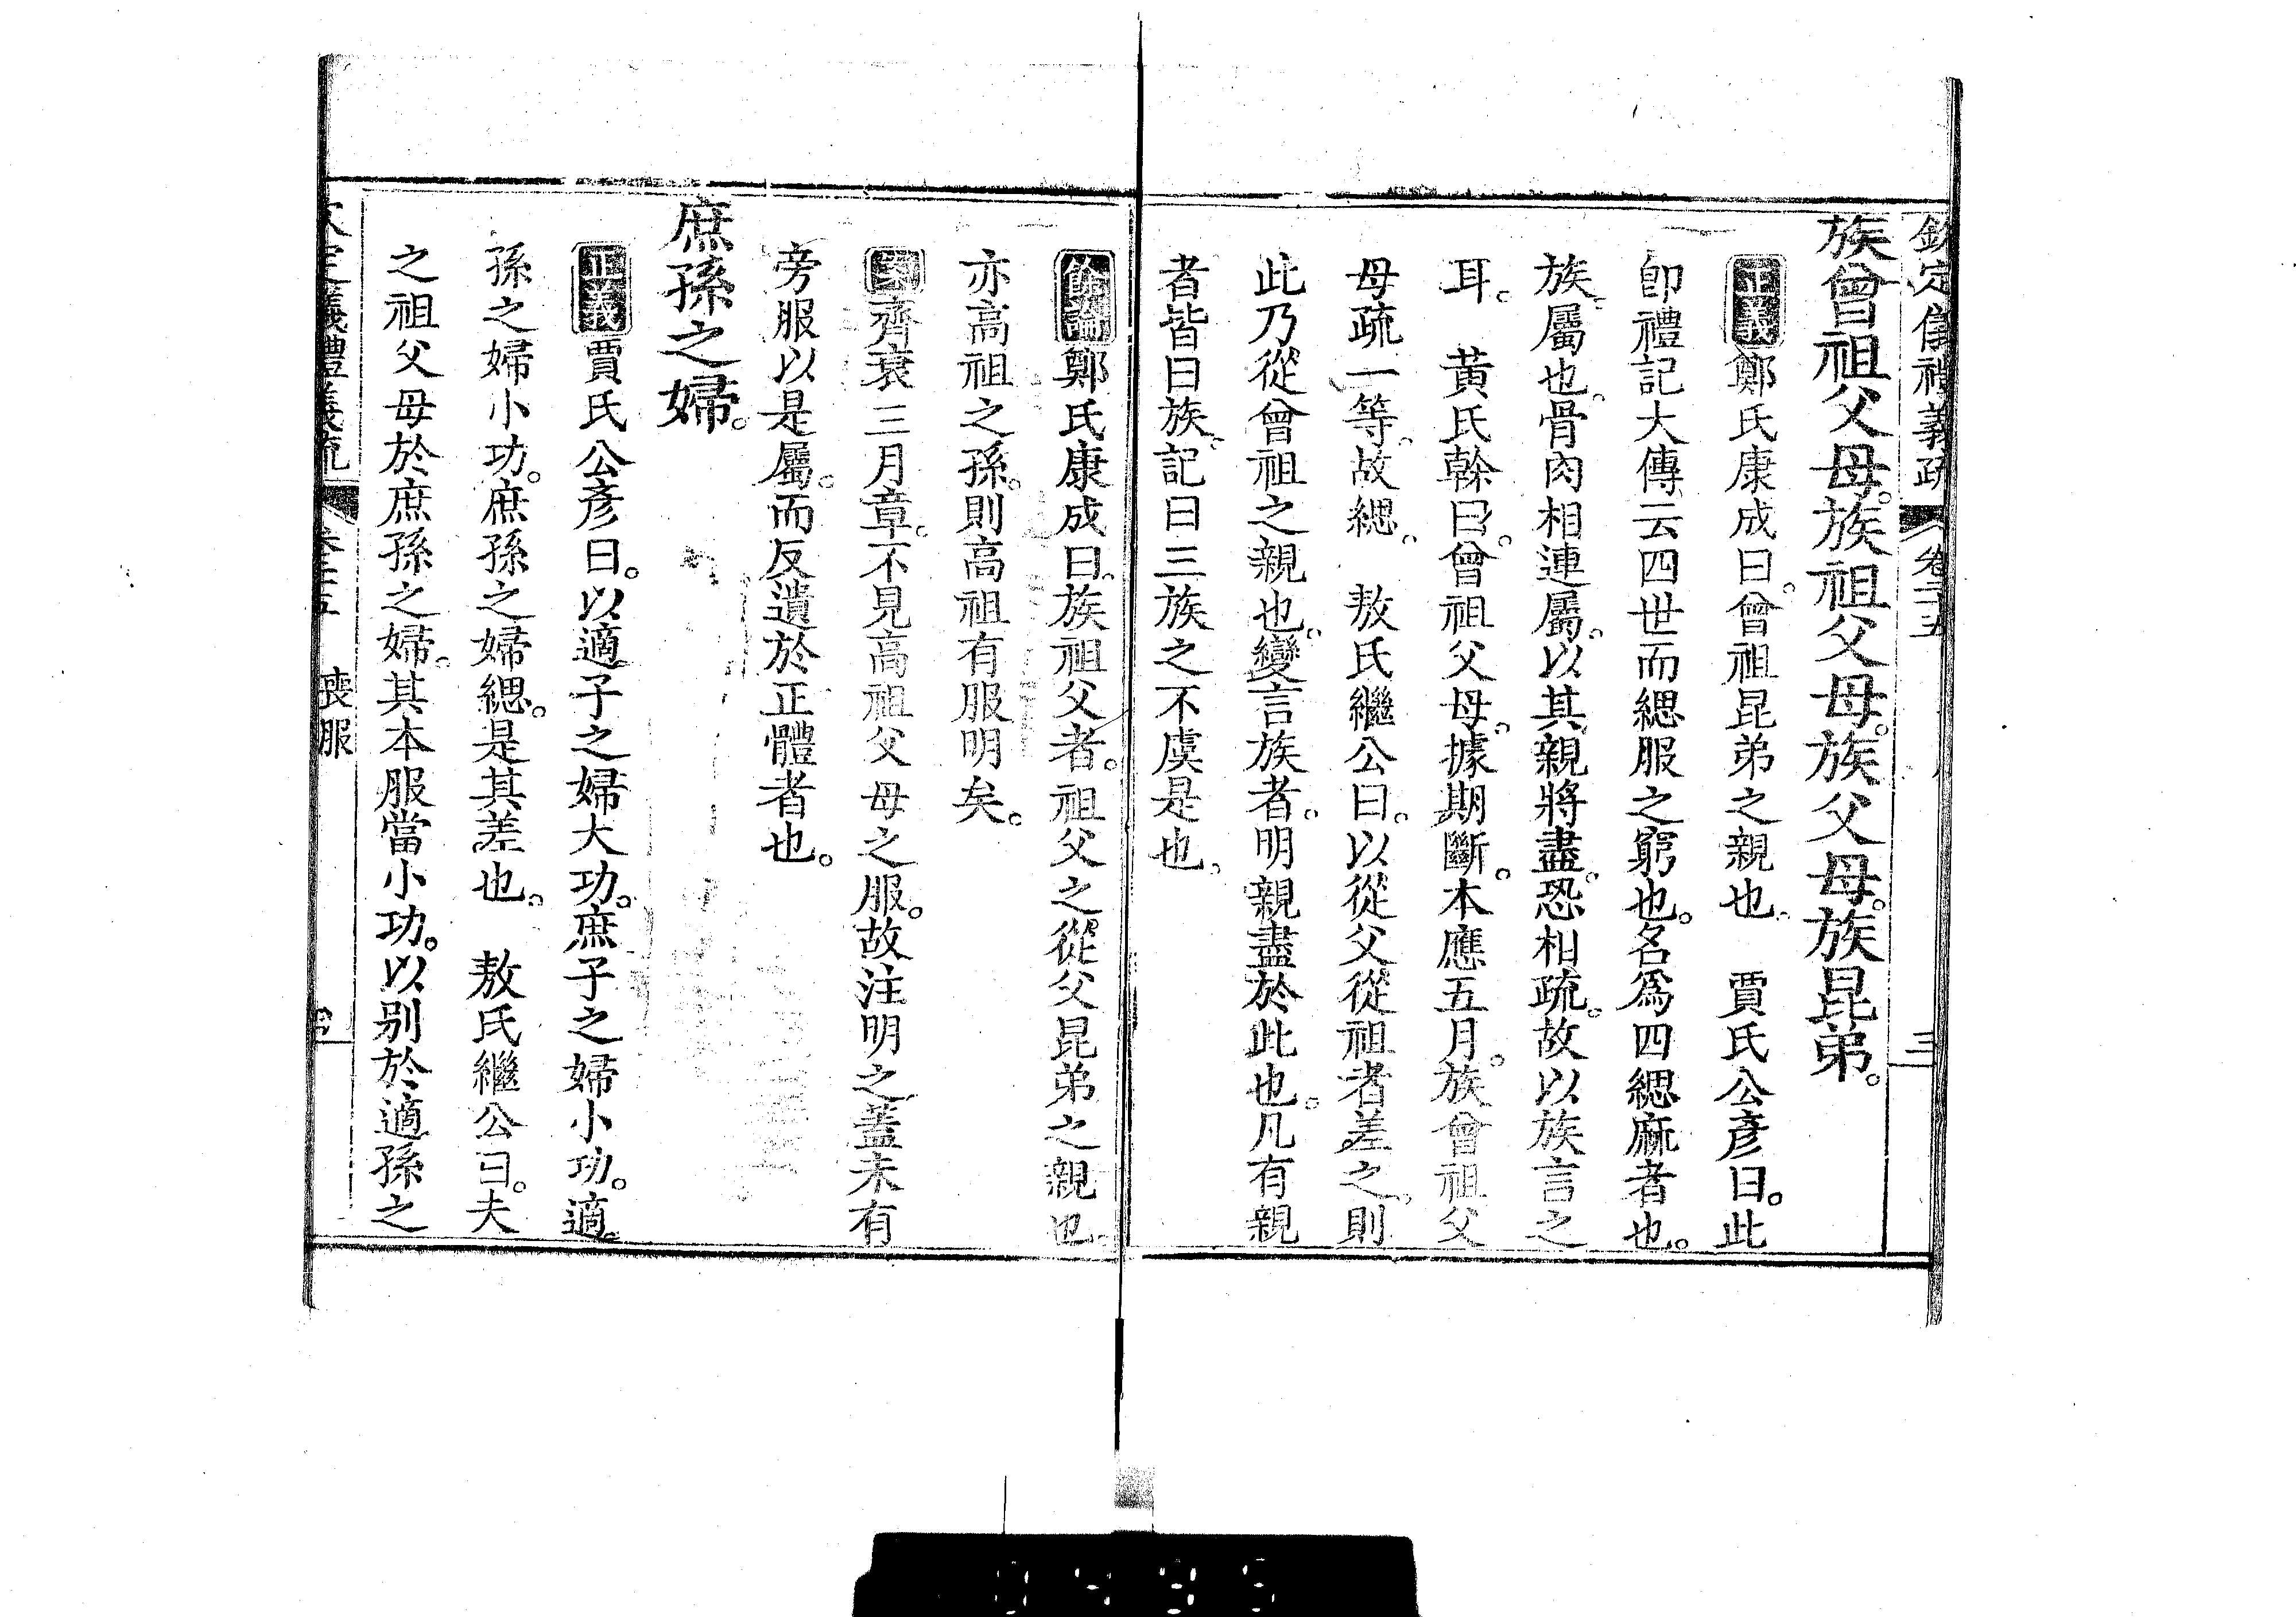 欽定儀禮義疏 卷二十五 三
族曾祖父母。族祖父母。族父母。族昆弟。
正義鄭氏康成曰。曾祖昆弟之親也。 賈氏公彥曰。此
卽禮記大傳云四世而緦服之窮也。名爲四緦麻者也。
族。屬也。骨肉相連屬。以其親將盡。恐相疏。故以族言之
耳。 黃氏榦曰。曾祖父母。據期斷。本應五月。族曾祖父
母疏一等。故緦。 敖氏繼公曰。以從父從祖者差之。則
此乃從曾祖之親也。變言族者。明親盡於此也。凡有親
者皆曰族。記曰三族之不虞是也。
餘論鄭氏康成曰。族祖父者。祖父之從父昆弟之親也。
亦高祖之孫。則高祖有服明矣。
案齊衰三月章。不見高祖父母之服。故注明之。蓋未有
旁服以是屬。而反遺於正體者也。
庶孫之婦。
正義賈氏公彥曰。以適子之婦大功。庶子之婦小功。適
孫之婦小功。庶孫之婦緦。是其差也。 敖氏繼公曰。夫
之祖父母於庶孫之婦。其本服當小功。以别於適孫之
欽定儀禮義疏 卷二十五 喪服